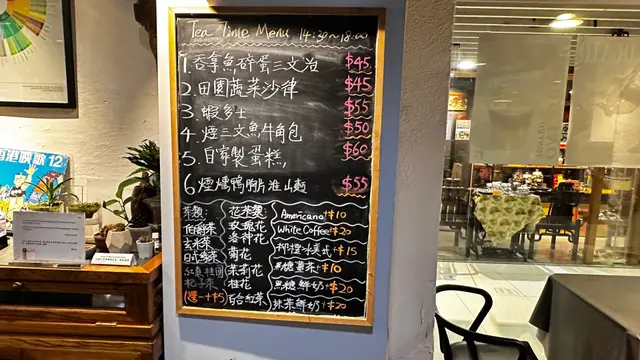 Tea Time Menu 14:30~18:00
1. 吞拿魚碎蛋三文治 $45
2. 田園蔬菜沙律 $45
3. 蝦多士 $55
4. 煙三文魚牛角包 $50
5. 自家製蛋糕 $60
6. 煙燻鴨胸片淮山麵 $55
茶類: 花茶類: Americano+$10
伯爵茶 玫瑰花 White Coffee+$20
玄米茶 洛神花 +$15
日式綠茶 菊花 黑糖薑茶+$10
紅棗桂圓 茉莉花 黑糖鮮奶+$20
杞子茶 桂花 抹茶鮮奶+$20
(選一+$5) 百合紅茶
香港映畫 12